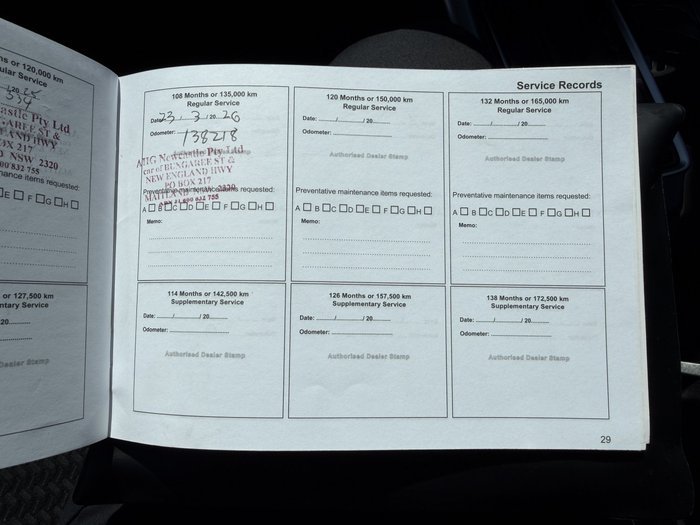 s or 120,000 km
ular Service
astle Pty Ltd
GAREE ST &
AND HWY
OX 217
NSW 2320
00 832 755
nance items requested:
E □ F □G□H□
or 127,500 km
entary Service
20...........
Dealer Stamp
Service Records
108 Months or 135,000 km
Regular Service
Date: 23 / 3 / 20 26
Odometer: 138218
Authorised Dealer Stamp
AHG Newcastle Pty Ltd
cor of BUNGAREE ST &
NEW ENGLAND HWY
PO BOX 217
MAITLAND NSW 2320
Preventative maintenance items requested:
A □ B □C □D □E □ F □G□H □
Memo:
120 Months or 150,000 km
Regular Service
Date: ........../............./ 20...........
Odometer: ................................
Authorised Dealer Stamp
Preventative maintenance items requested:
A □ B □C □D □E □ F □G□H □
Memo:
132 Months or 165,000 km
Regular Service
Date: ........../............./ 20...........
Odometer: ................................
Authorised Dealer Stamp
Preventative maintenance items requested:
A □ B □C □D □E □ F □G□H □
Memo:
114 Months or 142,500 km
Supplementary Service
Date: ........../............./ 20...........
Odometer: ................................
Authorised Dealer Stamp
126 Months or 157,500 km
Supplementary Service
Date: ........../............./ 20...........
Odometer: ................................
Authorised Dealer Stamp
138 Months or 172,500 km
Supplementary Service
Date: ........../............./ 20...........
Odometer: ................................
Authorised Dealer Stamp
29